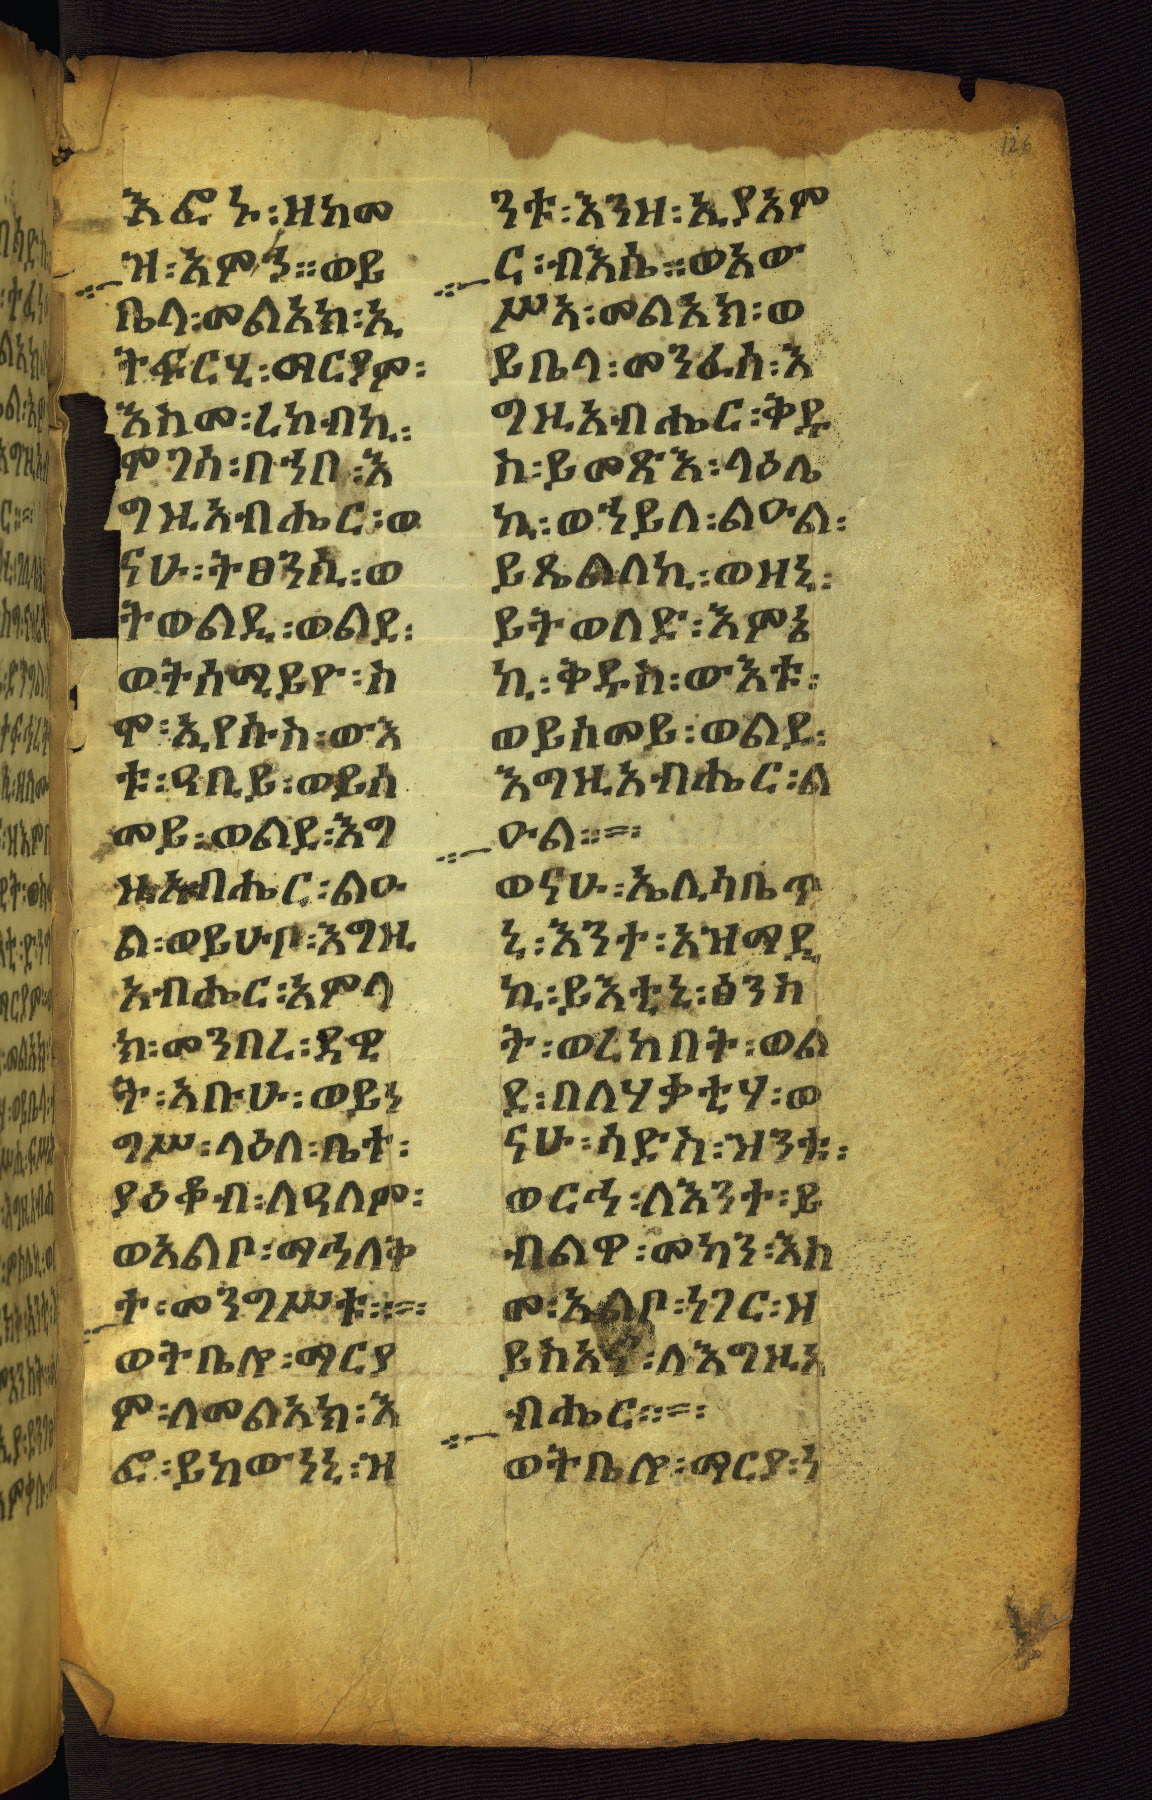 126
እፎኑ፡ዝከመ
ዝ፡አምኅ።ወይ
ቤላ፡መልአክ፡ኢ
ትፍርሂ፡ማርያም፡
እስመ፡ረከብኪ፡
ሞገሰ፡በኀበ፡እ
ግዚአብሔር፡ወ
ናሁ፡ትፀንሲ፡ወ
ትወልዲ፡ወልደ፡
ወትሰሚይዮ፡ስ
ሞ፡ኢየሱስ፡ውእ
ቱ፡ዓቢይ፡ወይሰ
መይ፡ወልደ፡እግ
ዚአብሔር፡ልዑ
ል፡ወይሁቦ፡እግዚ
አብሔር፡አምላ
ክ፡መንበረ፡ዳዊ
ት፡አቡሁ፡ወይነ
ግሥ፡ላዕለ፡ቤተ፡
ያዕቆብ፡ለዓለም፡
ወአልቦ፡ማኅለቅ
ተ፡መንግሥቱ።=፡
ወትቤሎ፡ማርያ
ም፡ለመልአክ፡እ
ፎ፡ይከውነኒ፡ዝ
ንቱ፡እንዘ፡ኢያአም
ር፡ብእሴ።ወአው
ሥአ፡መልአክ፡ወ
ይቤላ፡መንፈሰ፡እ
ግዚአብሔር፡ቅዱ
ስ፡ይመጽእ፡ላዕሌ
ኪ፡ወኀይለ፡ልዑል፡
ይጼልለኪ፡ወዘኒ፡
ይትወለድ፡እምኔ
ኪ፡ቅዱስ፡ውእቱ፡
ወይሰመይ፡ወልደ፡
እግዚአብሔር፡ል
ዑል።=፡
ወናሁ፡ኤልሳቤጥ
ኒ፡እንተ፡አዝማደ
ኪ፡ይእቲኒ፡ፅንስ
ት፡ወረከበት፡ወል
ደ፡በለሃቃቲሃ፡ወ
ናሁ፡ሳድስ፡ዝንቱ፡
ወርኅ፡ለእንተ፡ይ
ብልዋ፡መካን፡እስ
መ፡አልቦ፡ነገር፡ዘ
ይስአኖ፡ለእግዚአ
ብሔር።=፡
ወትቤሎ፡ማርያ፡ነ